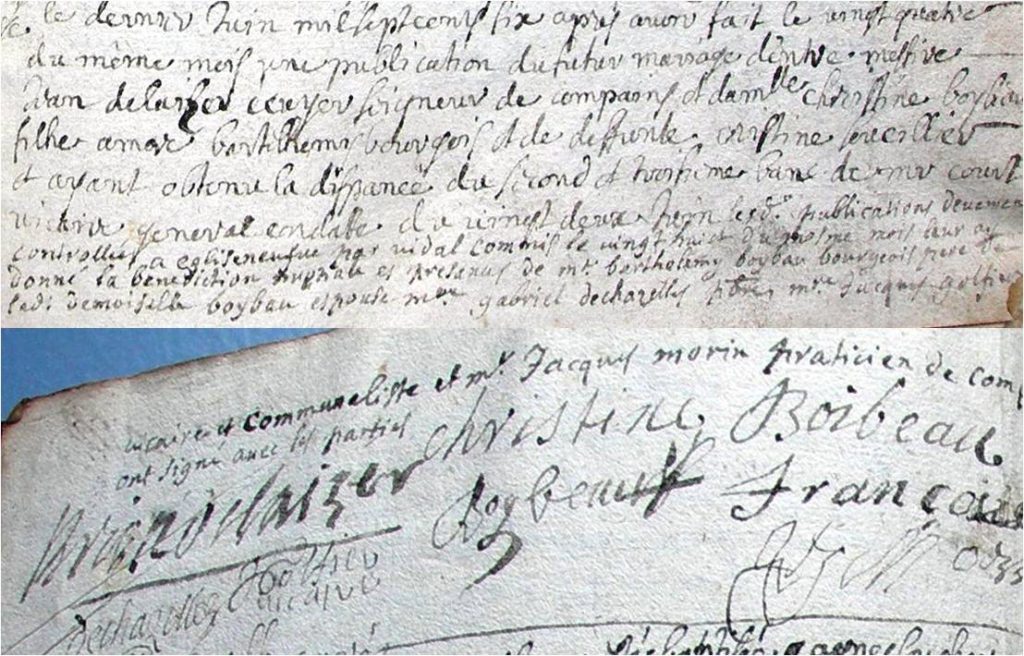 le dernier Juin mil sept cens six apres avoir fait le vingt quatre
du même mois une publication du futur mariage dentre messire
delaizer ecuyer seigneur de compains et damlle christine boybau
filhe a mre barthlhemy bourgois et de deffunte cristine
et ayant obtenu la dispance du second et troisieme banc de mr court
vicaire general en datte du vingt deux Juin lesd. publications deuement
controllee a egliseneufve par vidal commis le vingt huict du mesme mois leur ay
donné la benediction nuptiale es presences de mre barthelemy boybau bourgeois pere
lad. demoiselle boybau espouse mre gabriel dechazelles pbre, mre Jacques goltier
vicaire et communeliste et mr. Jacques morin praticien de comp
ont signe avec les parties
delaizer christine Boibeau
Boybeau Francois
dechazelles Goltier vicaire
J Morin